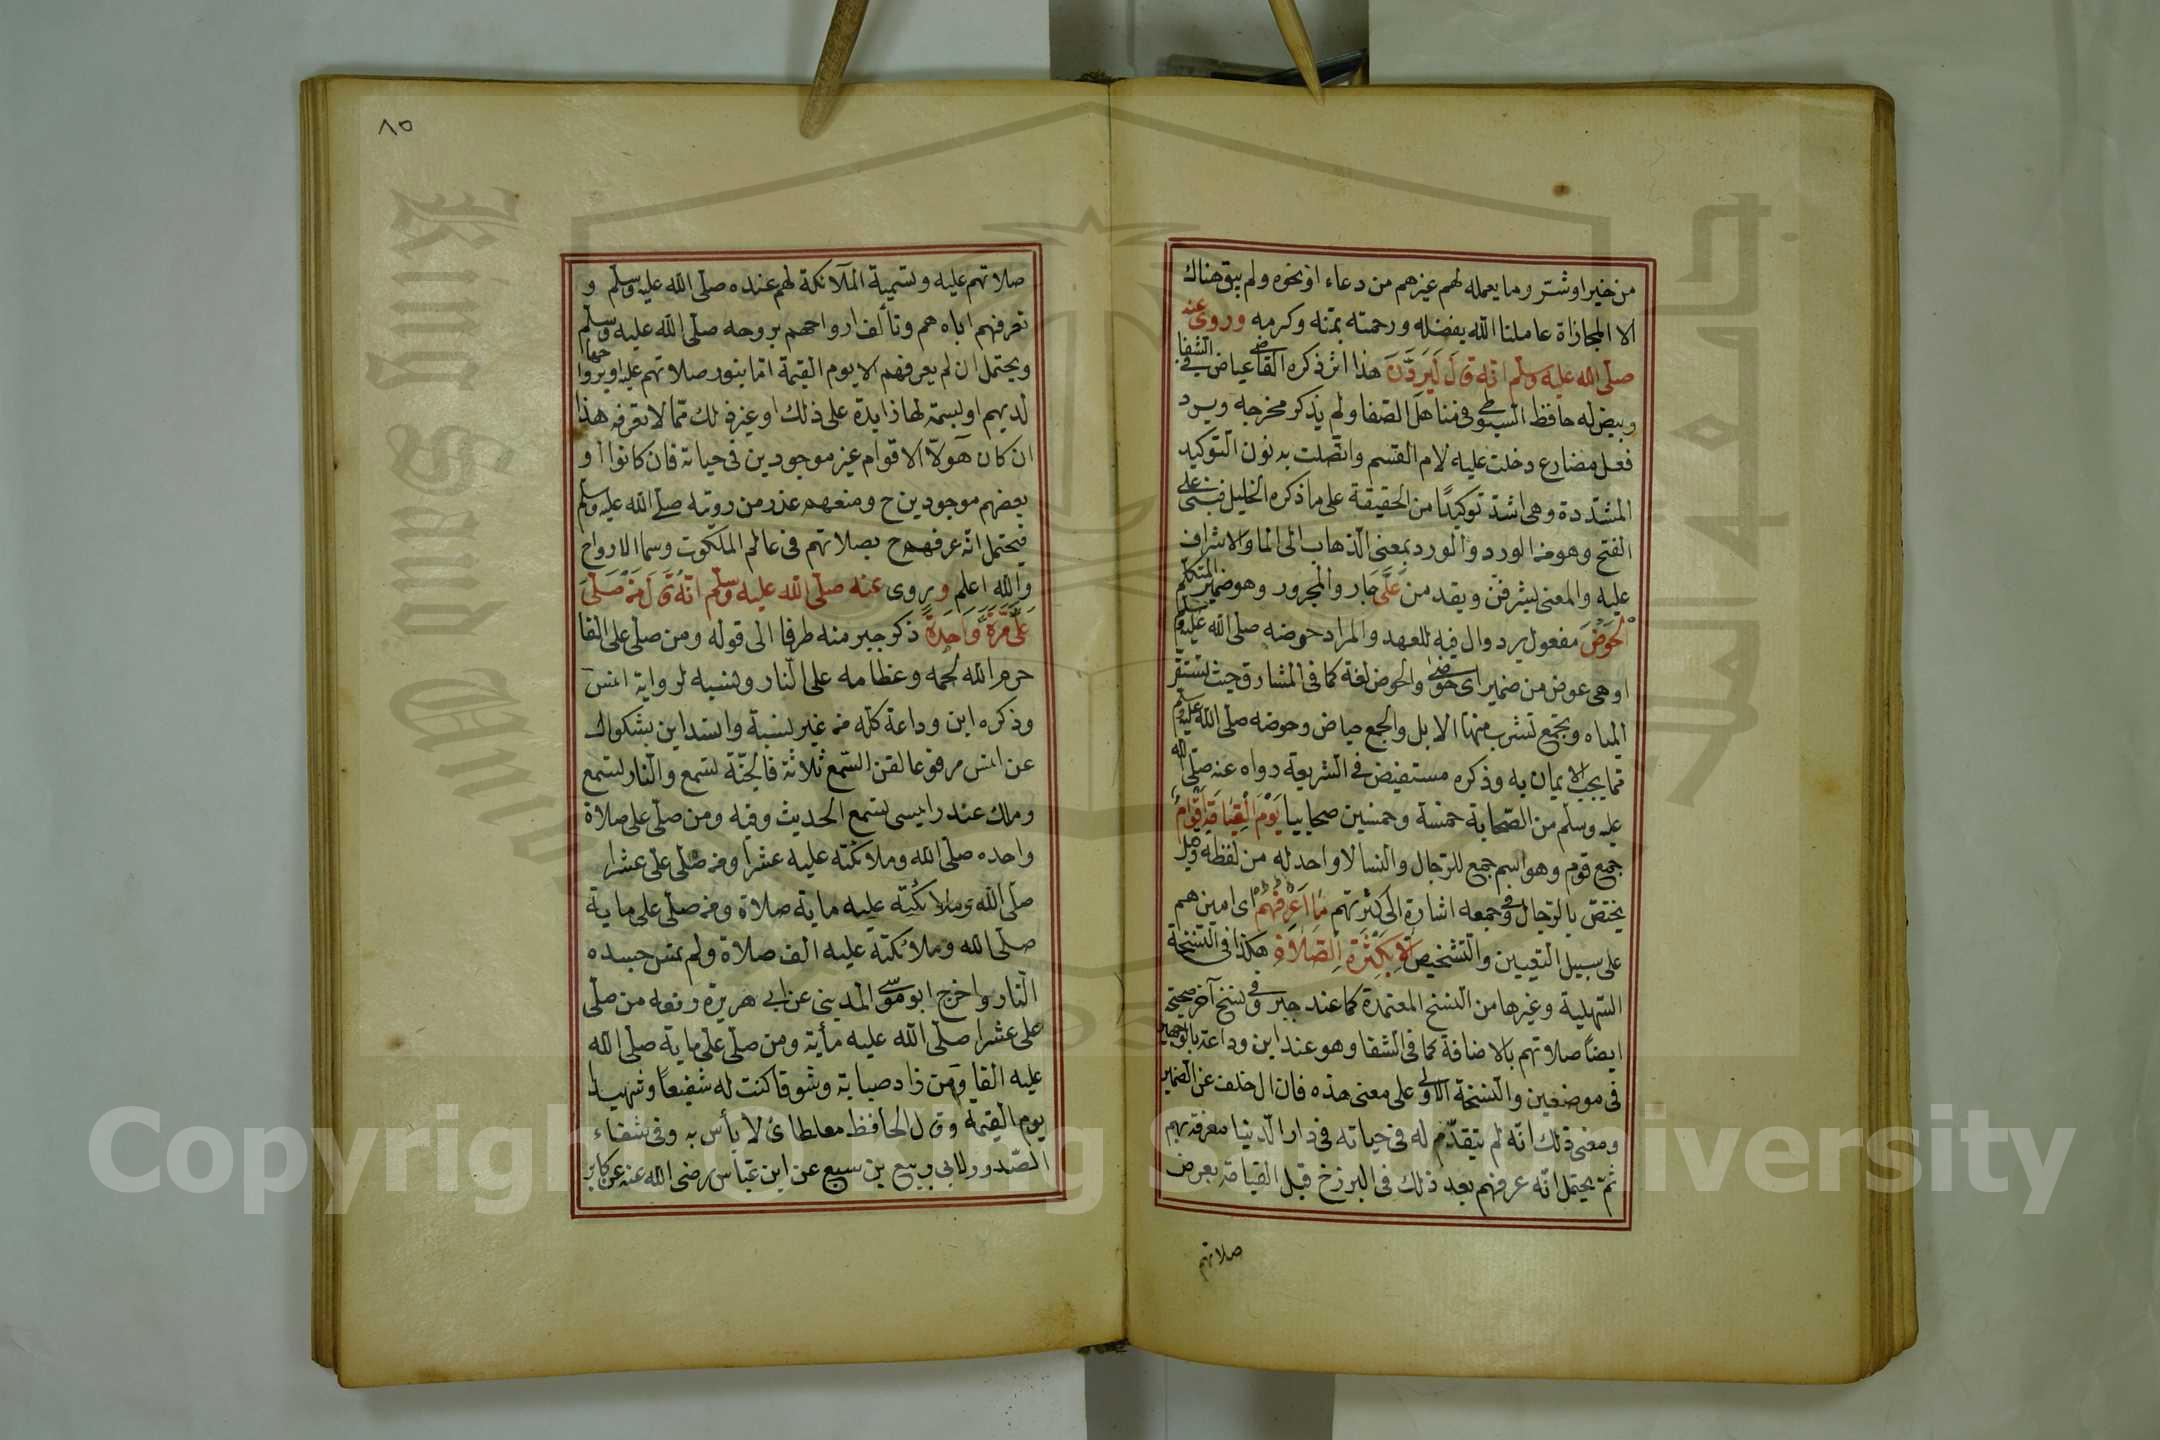 من خير او شر وما يعمله لهم غيرهم من دعاء او نحوه ولم يبق هناك
الا المجازاة عاملنا الله بفضله ورحمته بمنه وكرمه وروى عنه
صلى الله عليه وسلم انه قال ليردن هذا اثر ذكره القاضي عياض في الشفا
وبيض له حافظ السيوطي في مناهل الصفا ولم يذكر مخرجه ويرد
فعل مضارع دخلت عليه لام القسم واتصلت به نون التوكيد
المشددة وهي اشد توكيدًا من الحقيقة على ما ذكره الخليل فبنى على
الفتح وهو من الورد والورد بمعنى الذهاب الى الما والاشراف
عليه والمعنى ليشرفن ويقدمن عَلَيَّ جار والمجرور وهو ضمير المتكلم
الْحَوْضَ مفعول يرد وال فيه للعهد والمراد حوضه صلى الله عليه وسلم
او هي عوض من ضمير اي حوضي والحوض لغة كما في المشارق حيث تستقر
المياه وتجتمع لتشرب منها الابل والجمع حياض وحوضه صلى الله عليه وسلم
مما يجب الايمان به وذكره مستفيض في الشريعة رواه عنه صلى الله
عليه وسلم من الصحابة خمسة وخمسين صحابيا يَوْمَ الْقِيَامَةِ اَقْوَامٌ
جمع قوم وهو اسم جمع للرجال والنسا لا واحد له من لفظه وقيل
يختص بالرجال وفي جمعه اشارة الى كثرتهم مَا اَعْرِفُهُمْ اي امين هم
على سبيل التعيين والتشخيص اِلَّا بِكَثْرَةِ الصَّلَاةِ هكذا في النسخة
السهلية وغيرها من النسخ المعتمدة كما عند جبر وفي نسخ آخر صحيحة
ايضاً صلاتهم بالاضافة كما في الشفا وهو عند ابن وداعة بالوجهين
في موضعين والنسخة الاولى على معنى هذه فان ال خلف عن الضمير
ومعنى ذلك انه لم يتقدم له في حياته في دار الدنيا معرفة بهم
ثم يحتمل انه عرفهم بعد ذلك في البرزخ قبل القيامة بعرض
صلاتهم
٨٥
صلاتهم عليه وتسمية الملآئكة لهم عنده صلى الله عليه وسلم و
تعرفهم اياه هم وتألف ارواحهم بروحه صلى الله عليه وسلم
ويحتمل ان لم يعرفهم الا يوم القيمة اما بنور صلاتهم عليه او بروا
لديهم او بسمة لها زايدة على ذلك او غير ذلك مما لا نعرفه هذا
ان كان هولآ الاقوام غير موجودين في حياته فان كانوا او
بعضهم موجودين ح ومنعهم عذر من رويته صلى الله عليه وسلم
فيحتمل انه عرفهم ح بصلاتهم في عالم الملكوت وسما الارواح
والله اعلم ويروى عنه صلى الله عليه وسلم انه قال من صلى
عَلَيَّ مَرَّةً وَاحِدَةً ذكر جبر منه طرفا الى قوله ومن صلى علي الفا
حرم الله لحمه وعظامه على النار ونسبه لرواية انس
وذكره ابن وداعة كله من غير نسبة واسند ابن بشكوال
عن انس مرفوعا لقن السمع ثلاثة فالجنة تسمع والنار تسمع
وملك عند راسي يسمع الحديث وفيه ومن صلى علي صلاة
واحده صلى الله وملائكته عليه عشرا ومن صلى علي عشرا
صلى الله وملائكته عليه ماية صلاة ومن صلى علي ماية
صلى الله وملائكته عليه الف صلاة ولم يمس جسده
النار واخرج ابو موسى المديني عن ابي هريرة رفعه من صلى
علي عشرا صلى الله عليه مأية ومن صلى علي ماية صلى الله
عليه الفا ومن زاد صبابة وشوقا كنت له شفيعاً وشهيدا
يوم القيمة وقال الحافظ مغلطائ لا بأس به وفي شفاء
الصدور لابي ربيع بن سبيع عن ابن عباس رضى الله عنه عن جابر
Copyright © King Saud University